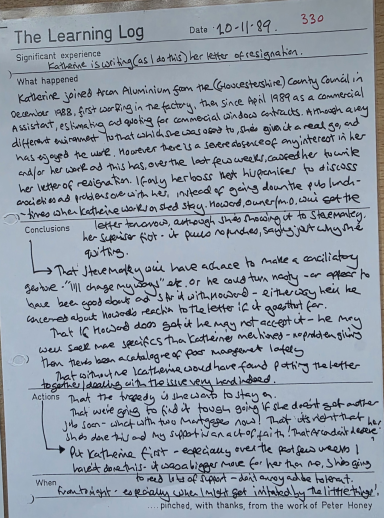 The Learning Log
Date 20-11-89.
330
Significant experience
Katherine is writing (as I do this) her letter of resignation.
What happened
Katherine joined Arcon Aluminium from the (Gloucestershire) County Council in
December 1988, first working in the factory, then since April 1989 as a commercial
Assistant, estimating and quoting for commercial window contracts. Although a very
different environment to that which she was used to, she's given it a real go, and
has enjoyed the work. However there is a severe absence of any interest in her
and/or her work and this has, over the last few weeks, caused her to write
her letter of resignation. If only her boss kept his promises to discuss
anxieties and problems over with her, instead of going down the pub lunch-
-times when Katherine works on she'd stay. Howard, owner/m.d, will get the
letter tomorrow, although she's showing it to Steve
her supervisor first - it pulls no punches, saying just why she's
quitting.
Conclusions
That Steve will have a chance to make a conciliatory
gesture - "I'll change my ways" etc. Or he could turn nasty - or appear to
have been good about it and stir it with Howard - either way he'll be
concerned about Howard's reaction to the letter if it goes that far.
That if Howard does get it he may not accept it - he may
well seek more specifics than Katherine mentioned - no problem giving
them there's been a catalogue of poor management lately
That without me Katherine would have found putting the letter
together/dealing with the issue very hard indeed.
Actions
That the tragedy is she wants to stay on.
That we're going to find it tough going if she doesn't get another
job soon - what with two mortgages now! That it's right that
she's done this and my support is an act of faith! That
Put Katherine first - especially over the past few weeks I
haven't done this - it was a bigger move for her than me. She's going
to need lots of support - don't always be tolerant.
When
From tonight - especially when I might get irritated by the 'little things'!
....pinched, with thanks, from the work of Peter Honey